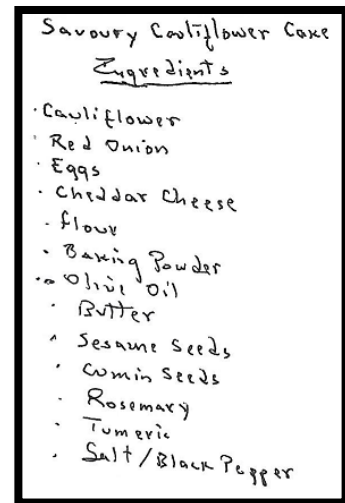 Savoury Cauliflower Cake
Ingredients
· Cauliflower
· Red Onion
· Eggs
· Cheddar Cheese
· flour
· Baking Powder
· Olive Oil
· Butter
· Sesame Seeds
· Cumin Seeds
· Rosemary
· Tumeric
· Salt/Black Pepper